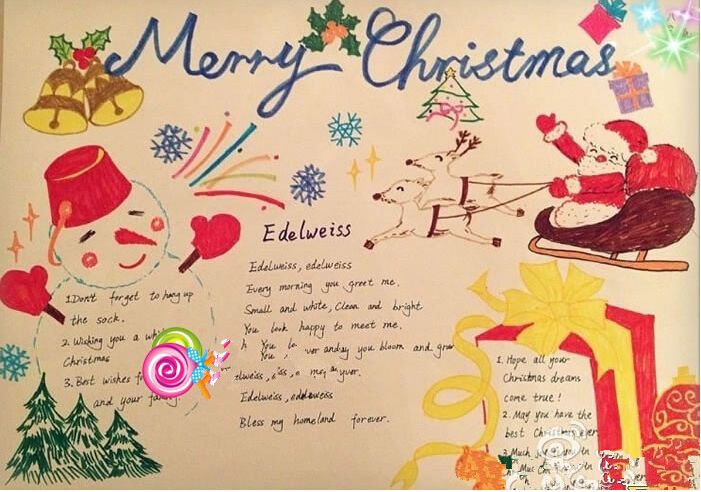 Merry Christmas
Edelweiss
Edelweiss, edelweiss
Every morning you greet me.
Small and white, Clean and bright
You look happy to meet me.
You bloom and grow
Edelweiss, edelweiss
Bless my homeland forever.
1. Don't forget to hang up
the sock.
2. Wishing you a
Christmas
3. Best wishes
and your
1. Hope all your
Christmas dreams
come true!
2. May you have the
best Christmas ever.
3. Much